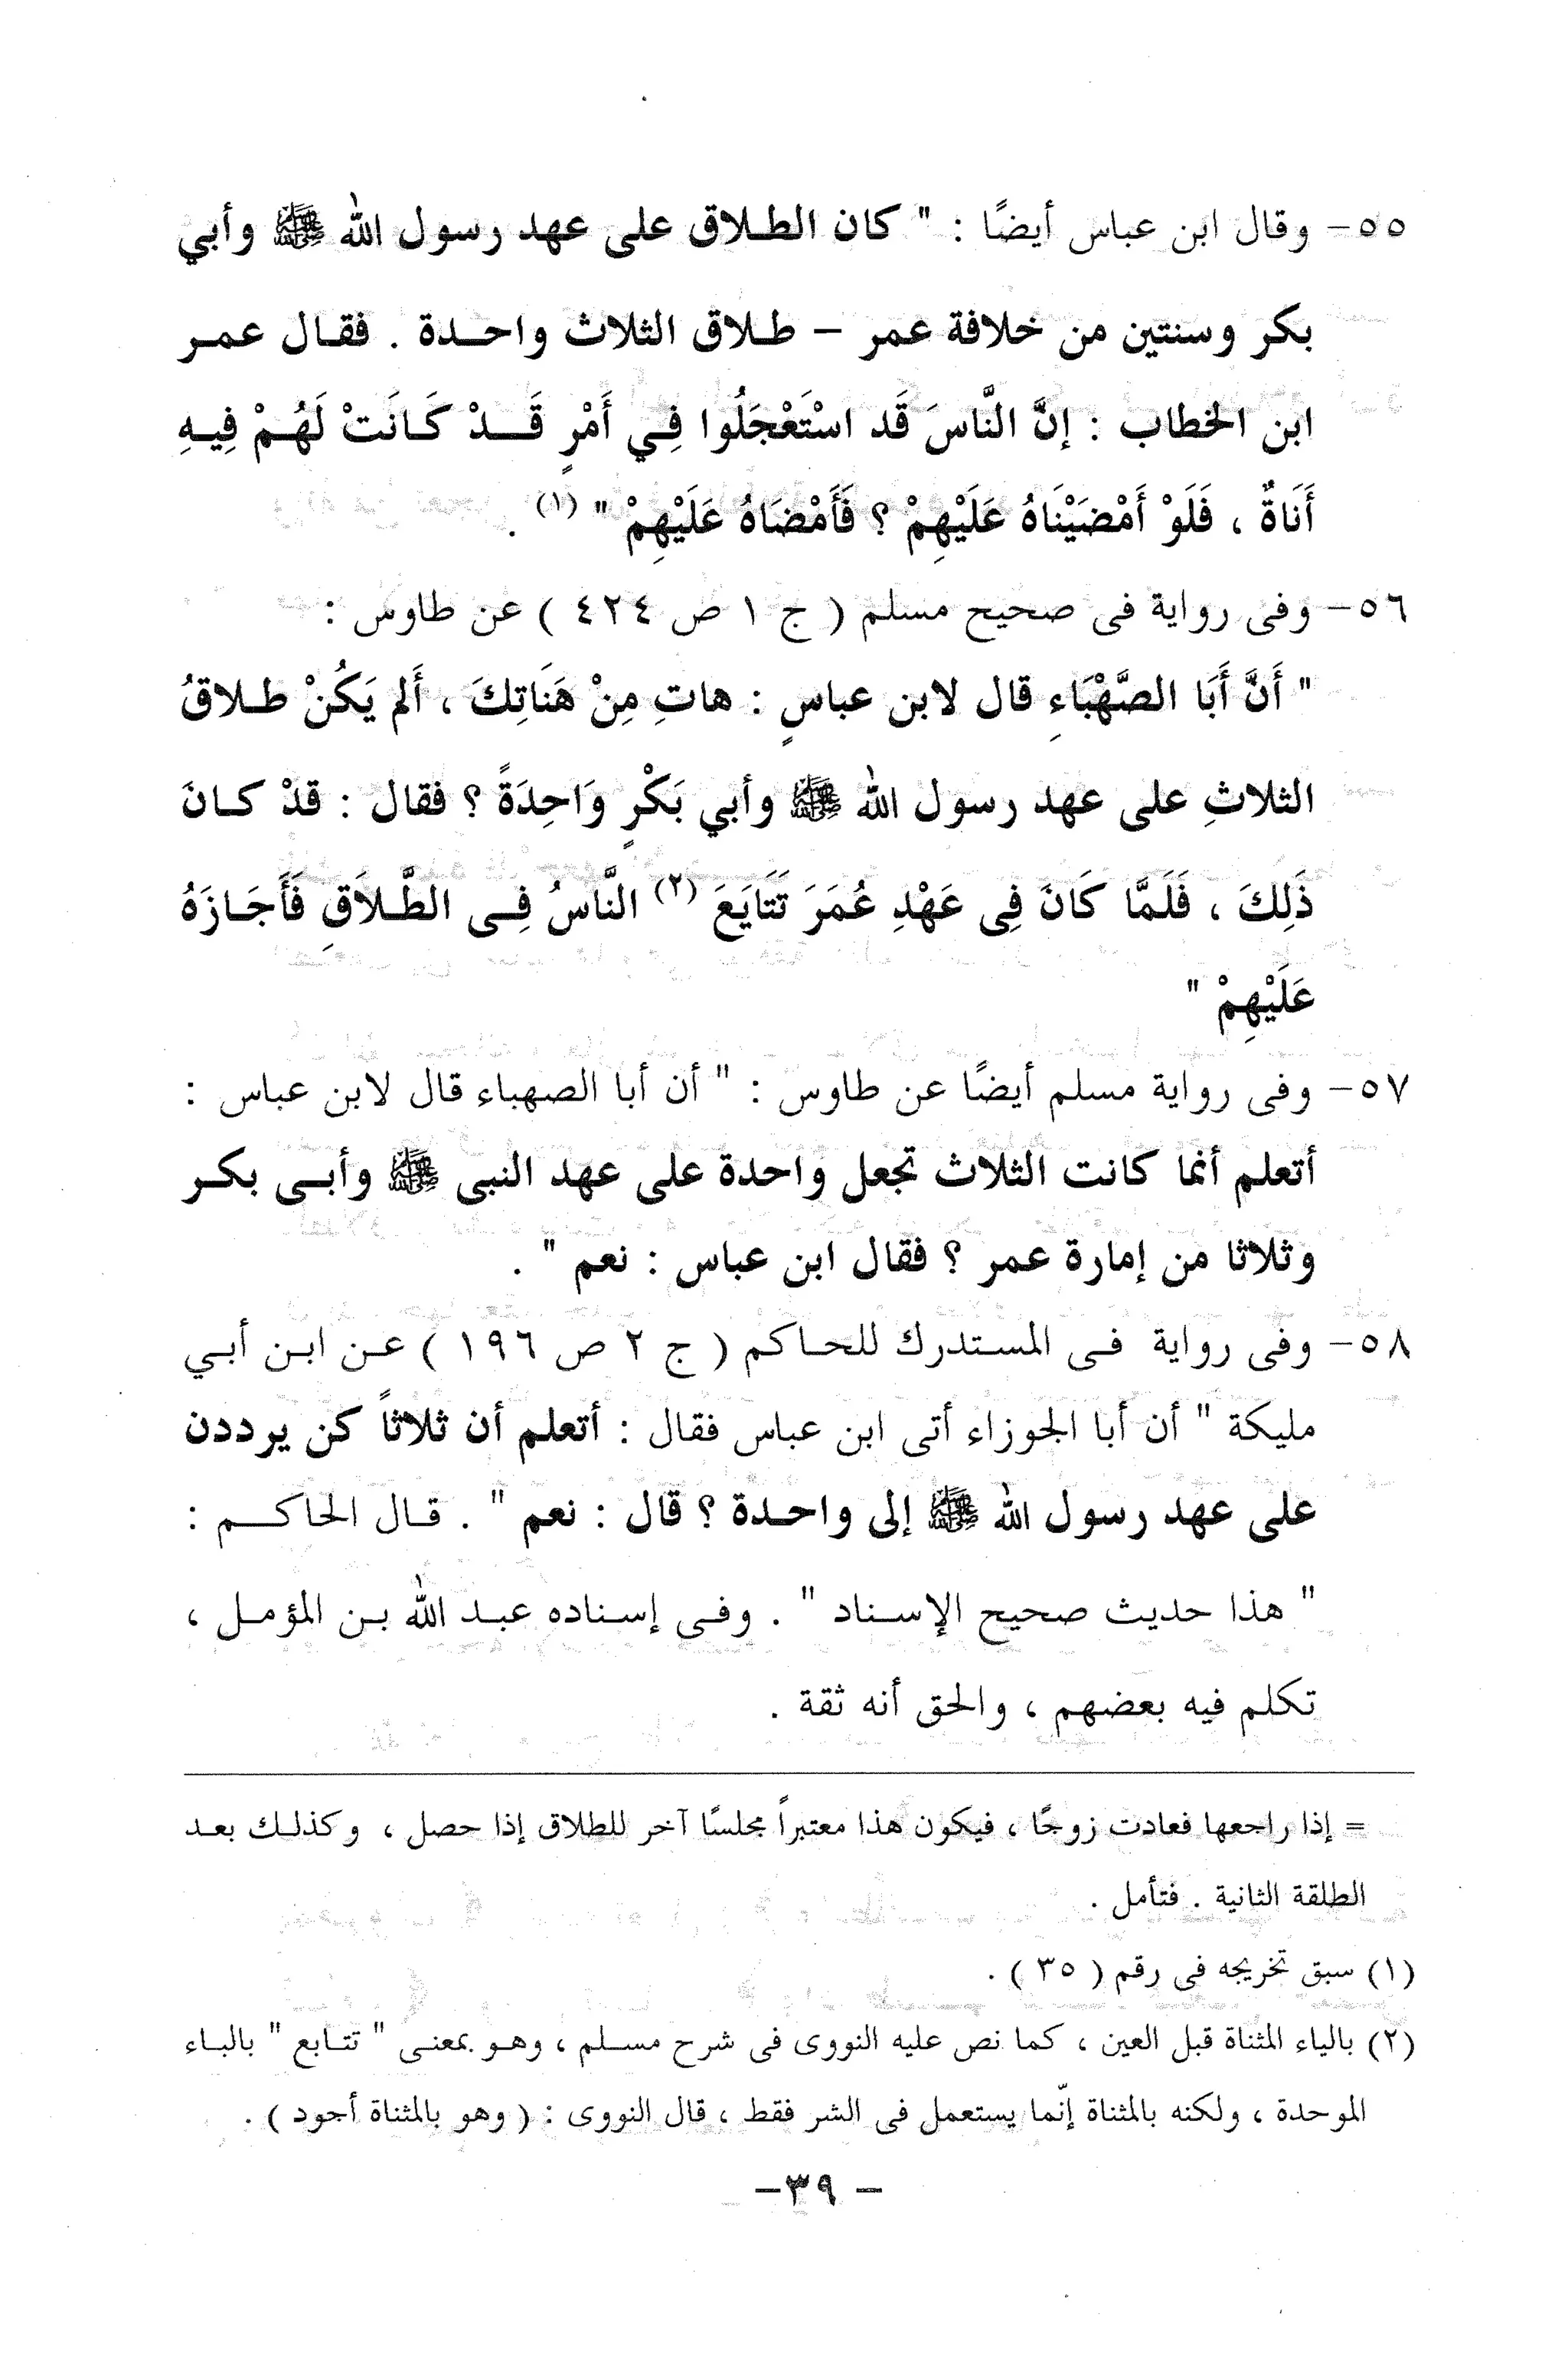 ٥٥- وقال ابن عباس أيضًا : " كان الطلاق على عهد رسول الله ﷺ وأبي
بكر وسنتين من خلافة عمر – طلاق الثلاث واحدة . فقال عمر
ابن الخطاب : إنَّ النَّاسَ قَد اسْتَعْجَلُوا فِي أَمْرٍ قَدْ كَانَتْ لَهُمْ فِيهِ
أَنَاةٌ ، فَلَوْ أَمْضَيْنَاهُ عَلَيْهِمْ ؟ فَأَمْضَاهُ عَلَيْهِمْ " (١) .
٥٦- وفى رواية فى صحيح مسلم ( ج ١ ص ٤٢٤ ) عن طاوس :
" أَنَّ أَبَا الصَّهْبَاءِ قال لابن عباسٍ : هاتِ مِنْ هَنَاتِكَ ، أَلم يَكُنْ طلاقُ
الثلاثِ على عهد رسول الله ﷺ وأبي بَكْرٍ وَاحِدَةً ؟ فقال : قدْ كانَ
ذَلِكَ ، فَلَمَّا كَانَ فِى عَهْدِ عُمَرَ تَتَايَعَ (٢) النَّاسُ فِى الطَّلاَقِ فَأَجَازَهُ
عَلَيْهِمْ "
٥٧- وفى رواية مسلم أيضًا عن طاوس : " أن أبا الصهباء قال لابن عباس :
أتعلم أنما كانت الثلاث تجعل واحدة على عهد النبى ﷺ وأبى بكر
وثلاثا من إمارة عمر ؟ فقال ابن عباس : نعم " .
٥٨- وفى رواية فى المستدرك للحاكم ( ج ٢ ص ١٩٦ ) عن ابن أبي
مليكة " أن أبا الجوزاء أتى ابن عباس فقال : أتعلم أن ثلاثاً كن يرددن
على عهد رسول الله ﷺ إلى واحدة ؟ قال : نعم " . قال الحاكم :
" هذا حديث صحيح الإسناد " . وفى إسناده عبد الله بن المؤمل ،
تكلم فيه بعضهم ، والحق أنه ثقة .
= إذا راجعها فعادت زوجًا ، فيكون هذا معتبراً مجلسًا آخر للطلاق إذا حصل ، وكذلك بعد
الطلقة الثانية . فتأمل .
(١) سبق تخريجه فى رقم ( ٣٥ ) .
(٢) بالياء المثناة قبل العين ، كما نص عليه النووى فى شرح مسلم ، وهو بمعنى " تتابع " بالباء
الموحدة ، ولكنه بالمثناة إنّما يستعمل فى الشر فقط ، قال النووى : ( وهو بالمثناة أجود ) .
– ٣٩–